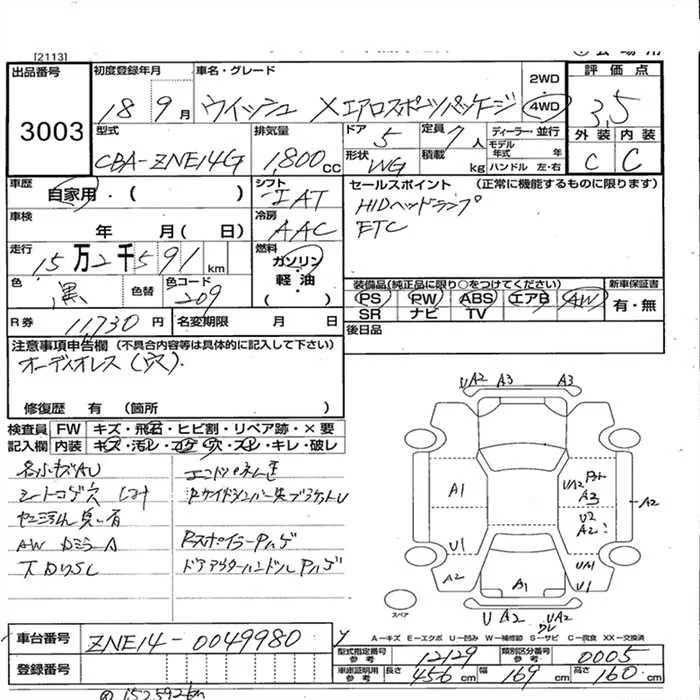 [2113]
出品番号
3003
初度登録年月
18 9月
車名・グレード
ウイッシュ Xエアロスポーツパッケージ
2WD
4WD
評価点
3,5
外装 内装
C C
型式
CBA-ZNE14G
排気量
1,800cc
ドア 5
定員 7人
ディーラー・並行
モデル年式 年
形状 WG
積載 kg
ハンドル 左・右
車歴
自家用・( )
シフト
IAT
セールスポイント (正常に機能するものに限ります)
HIDヘッドランプ
ETC
車検
年 月(日)
冷房
AAC
走行
15万2千591km
燃料
ガソリン・軽油
色 黒
色替
色コード
209
装備品(純正品に限り○をつけてください)
新車保証書
PS PW ABS エアB AW
SR ナビ TV
有・無
R券 11,730円
名変期限 月 日
後日品
注意事項申告欄(不具合内容等は具体的に記入して下さい)
オーディオレス(穴).
修復歴 有(箇所 )
検査員記入欄
FW キズ・飛石・ヒビ割・リペア跡・×要
内装 キズ・汚レ・コゲ・穴・スレ・キレ・破レ
各小キズAU
シートコゲ穴 シミ
ヤニ 臭い有
AW Dミラー A
Rスポイラー Pハゲ
ドアアウターハンドル Pハゲ
UA2 A3 A3
A1
UA2
A3
A2
U2
A2
U1
A2
A1
UA1
U1
スペア
U A2 UA2
A-キズ E-エクボ U-凹み W-補修跡 S-サビ C-腐食 XX-交換済
車台番号
ZNE14-0049980
登録番号
型式指定番号 参考
12129
類別区分番号 参考
0005
車庫証明用 参考
長さ 456cm
幅 169cm
高さ 160cm
152,592km